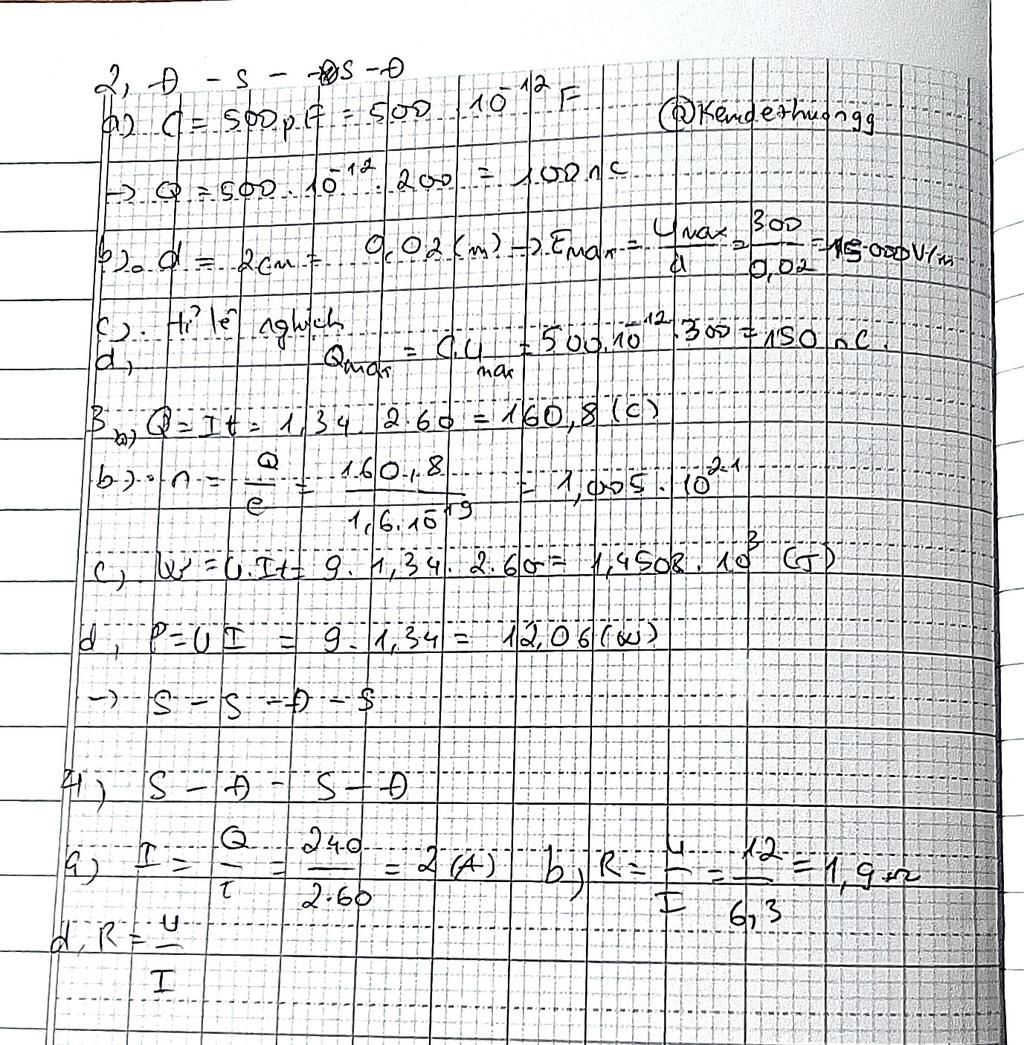 2, Đ - S - S - Đ
a) C = 500pF = 500 . 10⁻¹² F
@Kemdethuongg
-> Q = 500 . 10⁻¹² . 200 = 100 nC
b). d = 2cm = 0,02 (m) -> Emax = Umax/d = 300/0,02 = 15000V/m
c). tỉ lệ nghịch
d, Qmax = C.Umax = 500.10⁻¹².300 = 150 nC.
3, a) Q = It = 1,34. 2.60 = 160,8 (C)
b). n = Q/e = 160,8/1,6.10⁻¹⁹ = 1,005 . 10²¹
c, W = U.It = 9. 1,34. 2.60 = 1,4508. 10³ (J)
d, P = UI = 9. 1,34 = 12,06 (W)
-> S - S - Đ - S
4) S - Đ - S - Đ
a) I = Q/t = 240/2.60 = 2 (A) b, R = U/I = 12/6,3 = 1,9 Ω
d, R = U/I